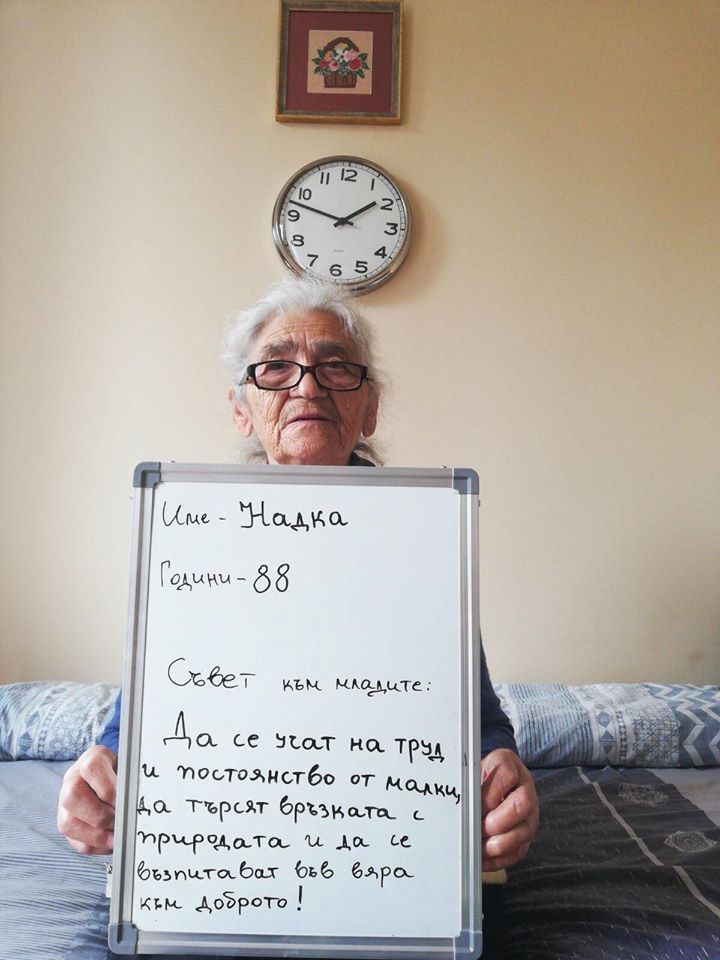 Име - Надка
Години - 88
Съвет към младите:
Да се учат на труд
и постоянство от малки,
да търсят връзката с
природата и да се
възпитават във вяра
към доброто!
12
1
2
3
4
5
6
7
8
9
10
11